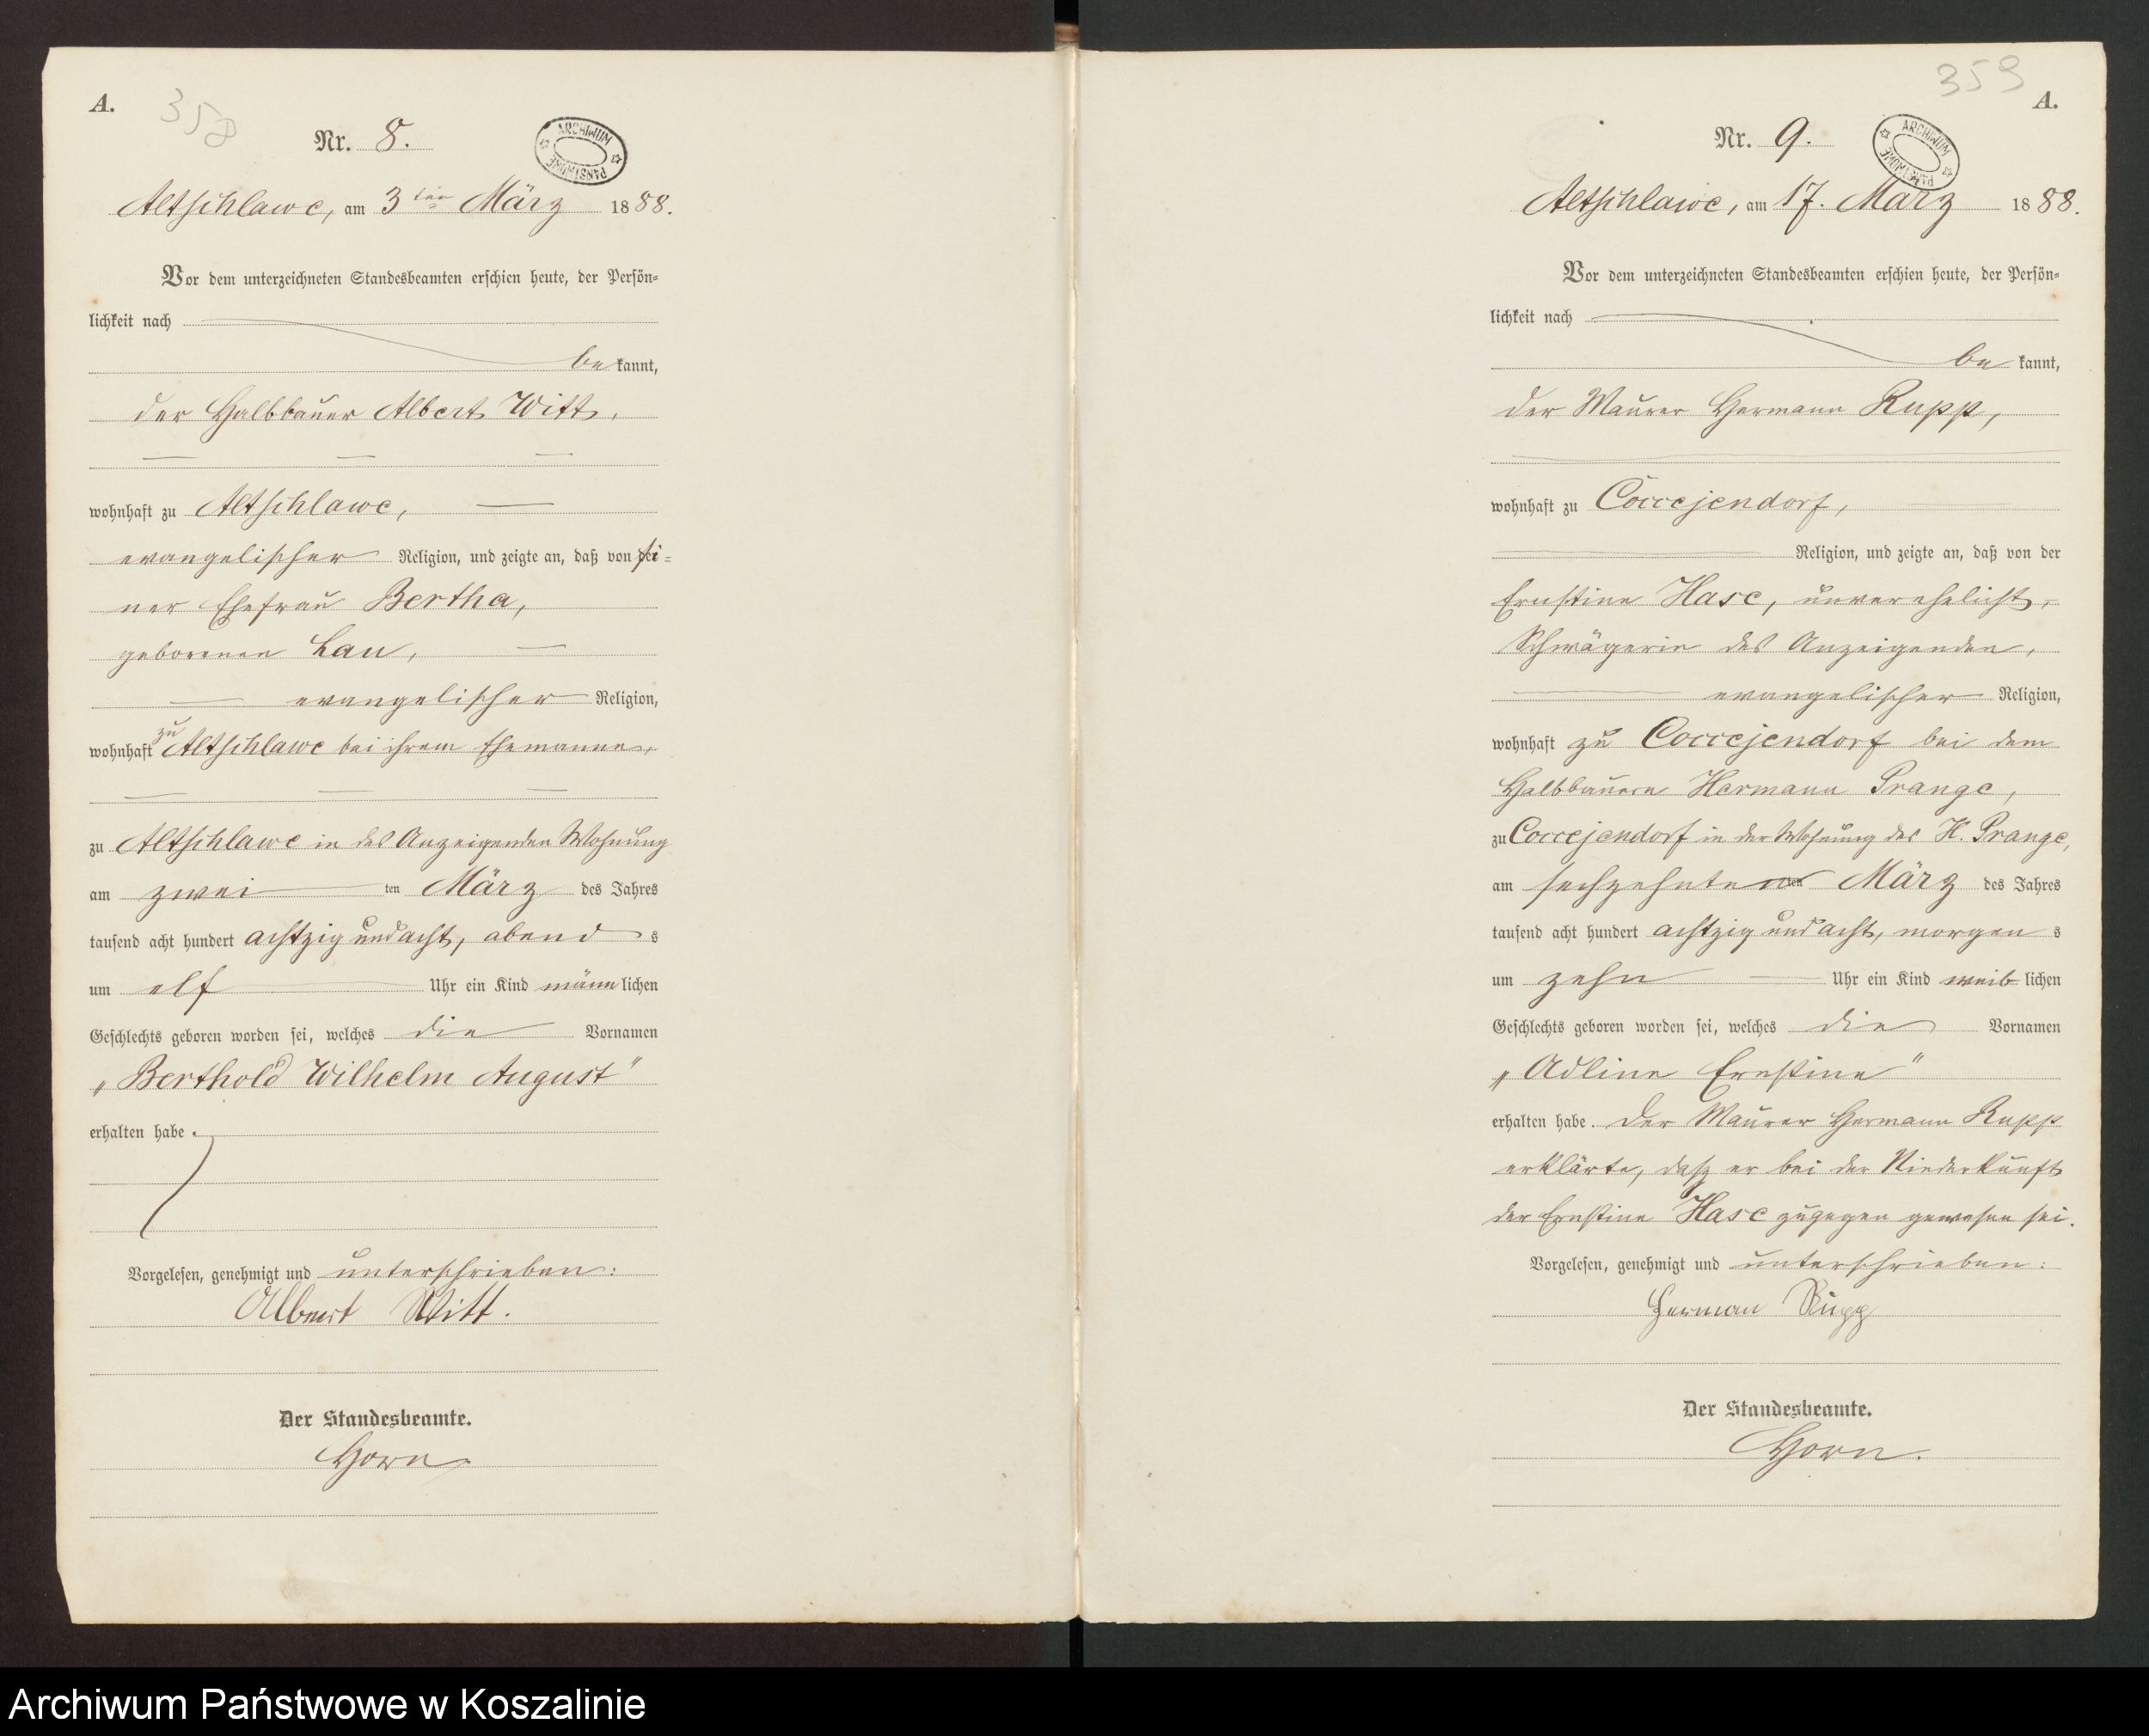 A.
358
Nr. 8.
ARCHIWUM PAŃSTWOWE
Altschlawe, am 3ten März 1888.
Vor dem unterzeichneten Standesbeamten erschien heute, der Persön-
lichkeit nach
be kannt,
der Halbbauer Albert Witt,
wohnhaft zu Altschlawe,
evangelischer Religion, und zeigte an, daß von der sei-
ner Ehefrau Bertha,
geborenen Lau,
evangelischer Religion,
wohnhaft zu Altschlawe bei ihrem Ehemanne,
zu Altschlawe in des Anzeigenden Wohnung
am zwei ten März des Jahres
tausend acht hundert achtzig und acht, abend s
um elf Uhr ein Kind männ lichen
Geschlechts geboren worden sei, welches die Vornamen
„Berthold Wilhelm August"
erhalten habe.
Vorgelesen, genehmigt und unterschrieben:
Albert Witt.
Der Standesbeamte.
Horn.
359
A.
Nr. 9.
ARCHIWUM PAŃSTWOWE
Altschlawe, am 17. März 1888.
Vor dem unterzeichneten Standesbeamten erschien heute, der Persön-
lichkeit nach
be kannt,
der Maurer Hermann Rupp,
wohnhaft zu Coccejendorf,
Religion, und zeigte an, daß von der
Ernstine Hase, unverehelicht,
Schwägerin des Anzeigenden,
evangelischer Religion,
wohnhaft zu Coccejendorf bei dem
Halbbauern Hermann Prange,
zu Coccejendorf in der Wohnung des H. Prange,
am sechzehnten ten März des Jahres
tausend acht hundert achtzig und acht, morgen s
um zehn Uhr ein Kind weib lichen
Geschlechts geboren worden sei, welches die Vornamen
„Adline Ernstine"
erhalten habe. Der Maurer Hermann Rupp
erklärte, daß er bei der Niederkunft
der Ernstine Hase zugegen gewesen sei.
Vorgelesen, genehmigt und unterschrieben:
Herman Rupp
Der Standesbeamte.
Horn.
Archiwum Państwowe w Koszalinie